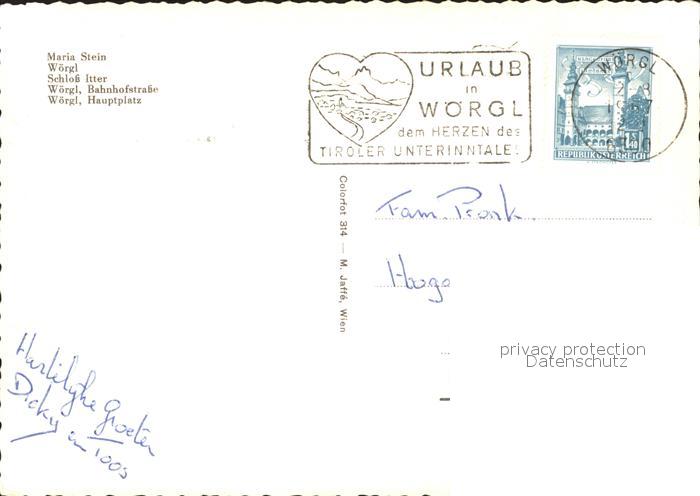 Maria Stein
Wörgl
Schloß Itter
Wörgl, Bahnhofstraße
Wörgl, Hauptplatz
URLAUB
in
WÖRGL
dem HERZEN des
TIROLER UNTERINNTALES
WÖRGL
REPUBLIK ÖSTERREICH
Colorfot 314 — M. Jaffé, Wien
Fam. Pronk.
Hugo
privacy protection
Datenschutz
Hartelijke Groeten
Dicky en Toos